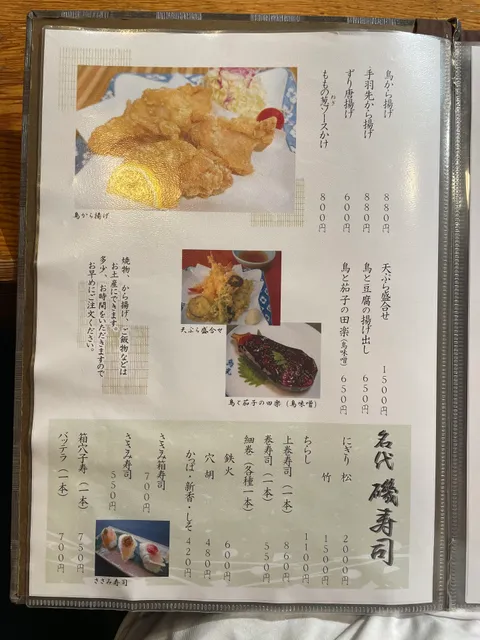 鳥から揚げ 880円
手羽先から揚げ 880円
ずり唐揚げ 600円
ももの葱ソースかけ 800円
ねぎ
鳥から揚げ
天ぷら盛合せ 1500円
鳥と豆腐の揚げ出し 650円
鳥と茄子の田楽(鳥味噌) 650円
天ぷら盛合せ
鳥と茄子の田楽(鳥味噌)
焼物、から揚げ、ご飯物などは
お土産にできます。
多少、お時間をいただきますので
お早めにご注文ください。
名代 磯寿司
にぎり 松 2000円
竹 1500円
ちらし 1100円
上巻寿司(一本) 860円
巻寿司(一本) 550円
細巻(各種一本)
鉄火 600円
穴胡 480円
かっぱ・新香・しそ 420円
ささみ箱寿司 700円
ささみ寿司 550円
箱穴子寿(一本) 750円
バッテラ(一本) 700円
ささみ寿司